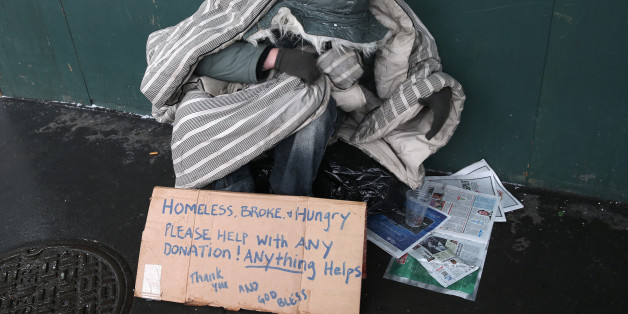 HOMELESS, BROKE, + HuNgRy
PLEASE HELP WITH ANY
DONATION! ANything Helps
Thank
You AND
GOD BLESS